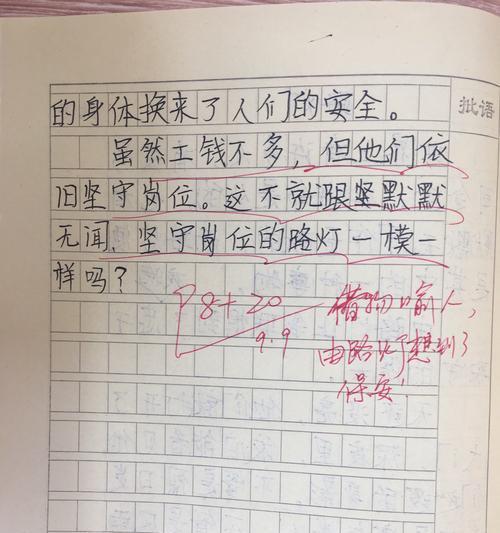 批语
的身体换来了人们的安全。
虽然工钱不多，但他们依
旧坚守岗位。这不就跟坚默默
无闻，坚守岗位的路灯一模一
样吗？
98+20
9.9
借物喻人，
由路灯想到了
保安！